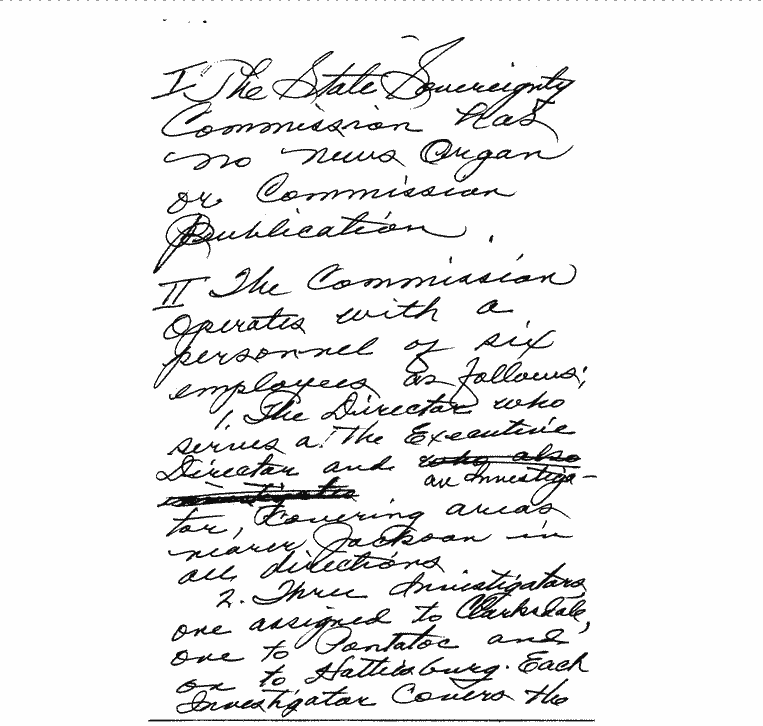 I The State Sovereignty
Commission has
no news Organ
or Commission
Publication.
II The Commission
Operates with a
personnel of six
employees as follows;
1. The Director who
serves as the Executive
Director and who also
investigates an Investiga-
tor, Covering areas
nearer Jackson in
all directions
2. Three Investigators,
one assigned to Clarksdale,
one to Pontotoc and
on to Hattiesburg. Each
Investigator Covers the